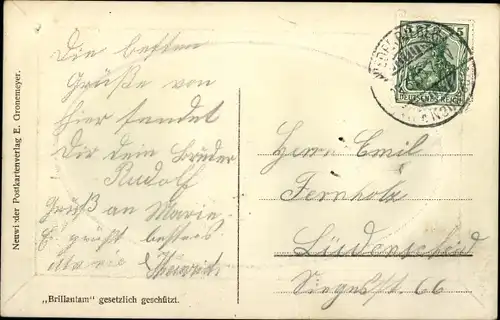 Die besten
Grüße von
hier sendet
Dir dein Bruder
Rudolf
Gruß an Marie
Es grüßt bestens
Heinrich
Herrn Emil
Fernholz
Lüdenscheid
Siegesst. 66
5
DEUTSCHES REICH
Neuwieder Postkartenverlag E. Gronemeyer.
„Brillantam" gesetzlich geschützt.